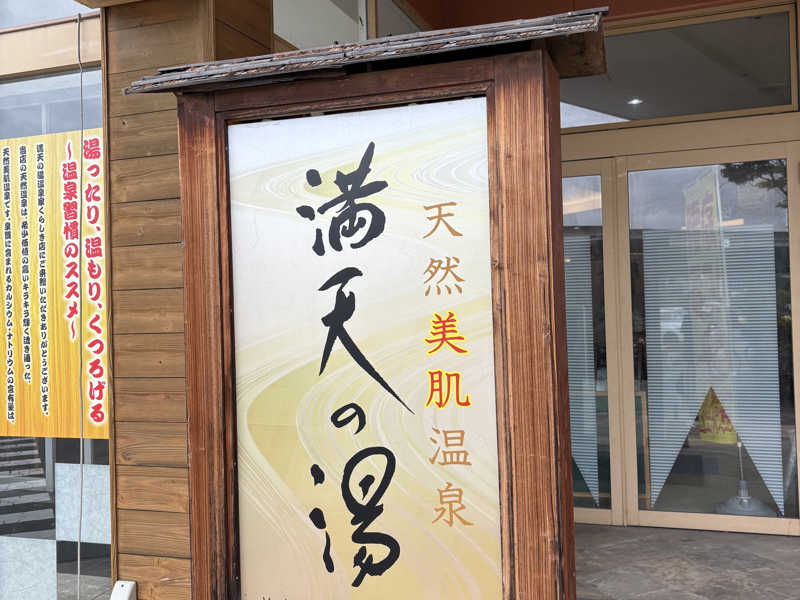 天然美肌温泉
満天の湯
湯ったり、温もり、くつろげる
～温泉習慣のススメ～
満天の湯温泉家くらしき店にご来館いただきありがとうございます。
当店の天然温泉は、希少価値の高いキラキラ輝く透き通った、
天然美肌温泉です。泉質に含まれるカルシウム・ナトリウムの含有量は、